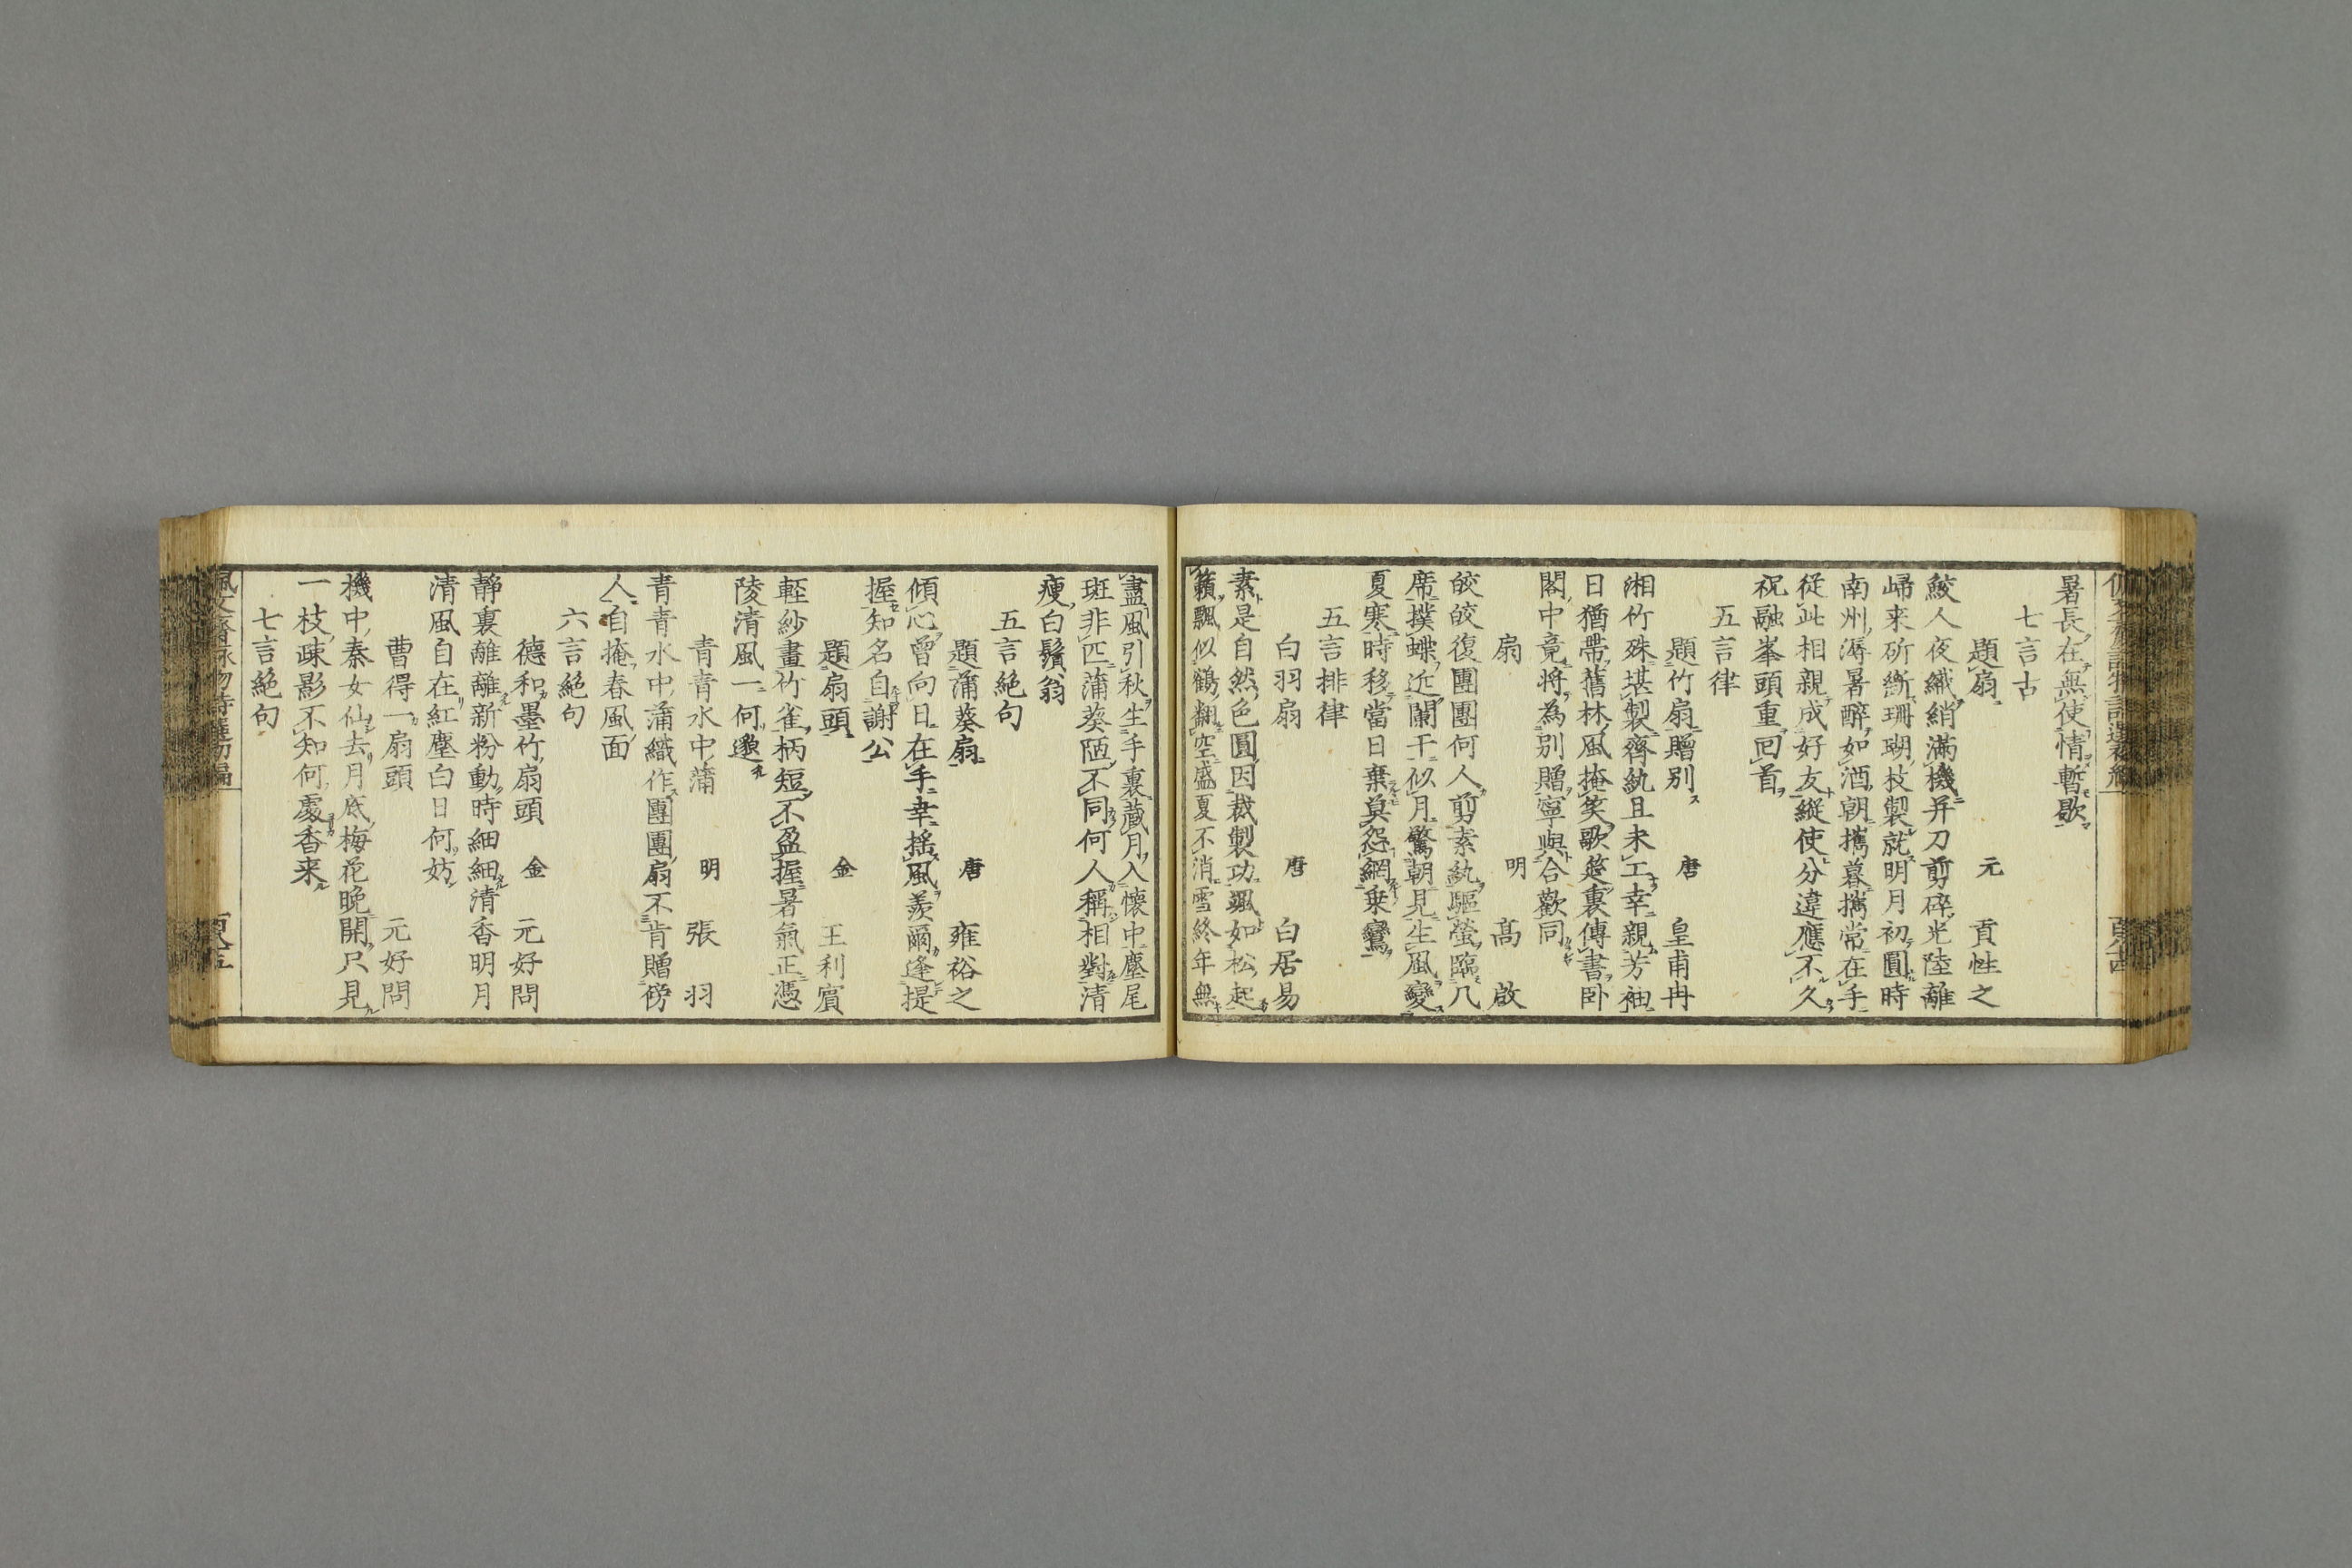 暑長在無使情暫歇
七言古
題扇 元 貢性之
鮫人夜織綃滿機并刀剪碎光陸離
歸来斫斷珊瑚枝製就明月初圓時
南州溽暑醉如酒朝攜暮攜常在手
従此相親成好友縦使分違應不久
祝融峯頭重回首
五言律
題竹扇贈別 唐 皇甫冉
湘竹殊堪製齊紈且未工幸親芳袖
日猶帶舊林風掩笑歌筵裏傳書卧
閣中竟將為別贈寧與合歡同
扇 明 高 啟
皎皎復團團何人剪素紈驅螢臨几
席撲蝶近闌干似月驚朝見生風變
夏寒時移當日棄莫怨網乗鸞
五言排律
白羽扇 唐 白居易
素是自然色圓因裁製功颯如松起
籟飄似鶴翻空盛夏不消雪終年無
盡風引秋生手裏藏月入懷中麈尾
斑非匹蒲葵陋不同何人稱相對清
瘦白鬚翁
五言絕句
題蒲葵扇 唐 雍裕之
傾心曾向日在手幸搖風羨爾逢提
握知名自謝公
題扇頭 金 王利賓
輕紗畫竹雀柄短不盈握暑氣正憑
陵清風一何邈
青青水中蒲 明 張 羽
青青水中蒲織作團團扇不肯贈傍
人自掩春風面
六言絕句
德和墨竹扇頭 金 元好問
靜裏離離新粉動時細細清香明月
清風自在紅塵白日何妨
曹得一扇頭 元好問
機中秦女仙去月底梅花晚開只見
一枝疎影不知何處香来
七言絕句